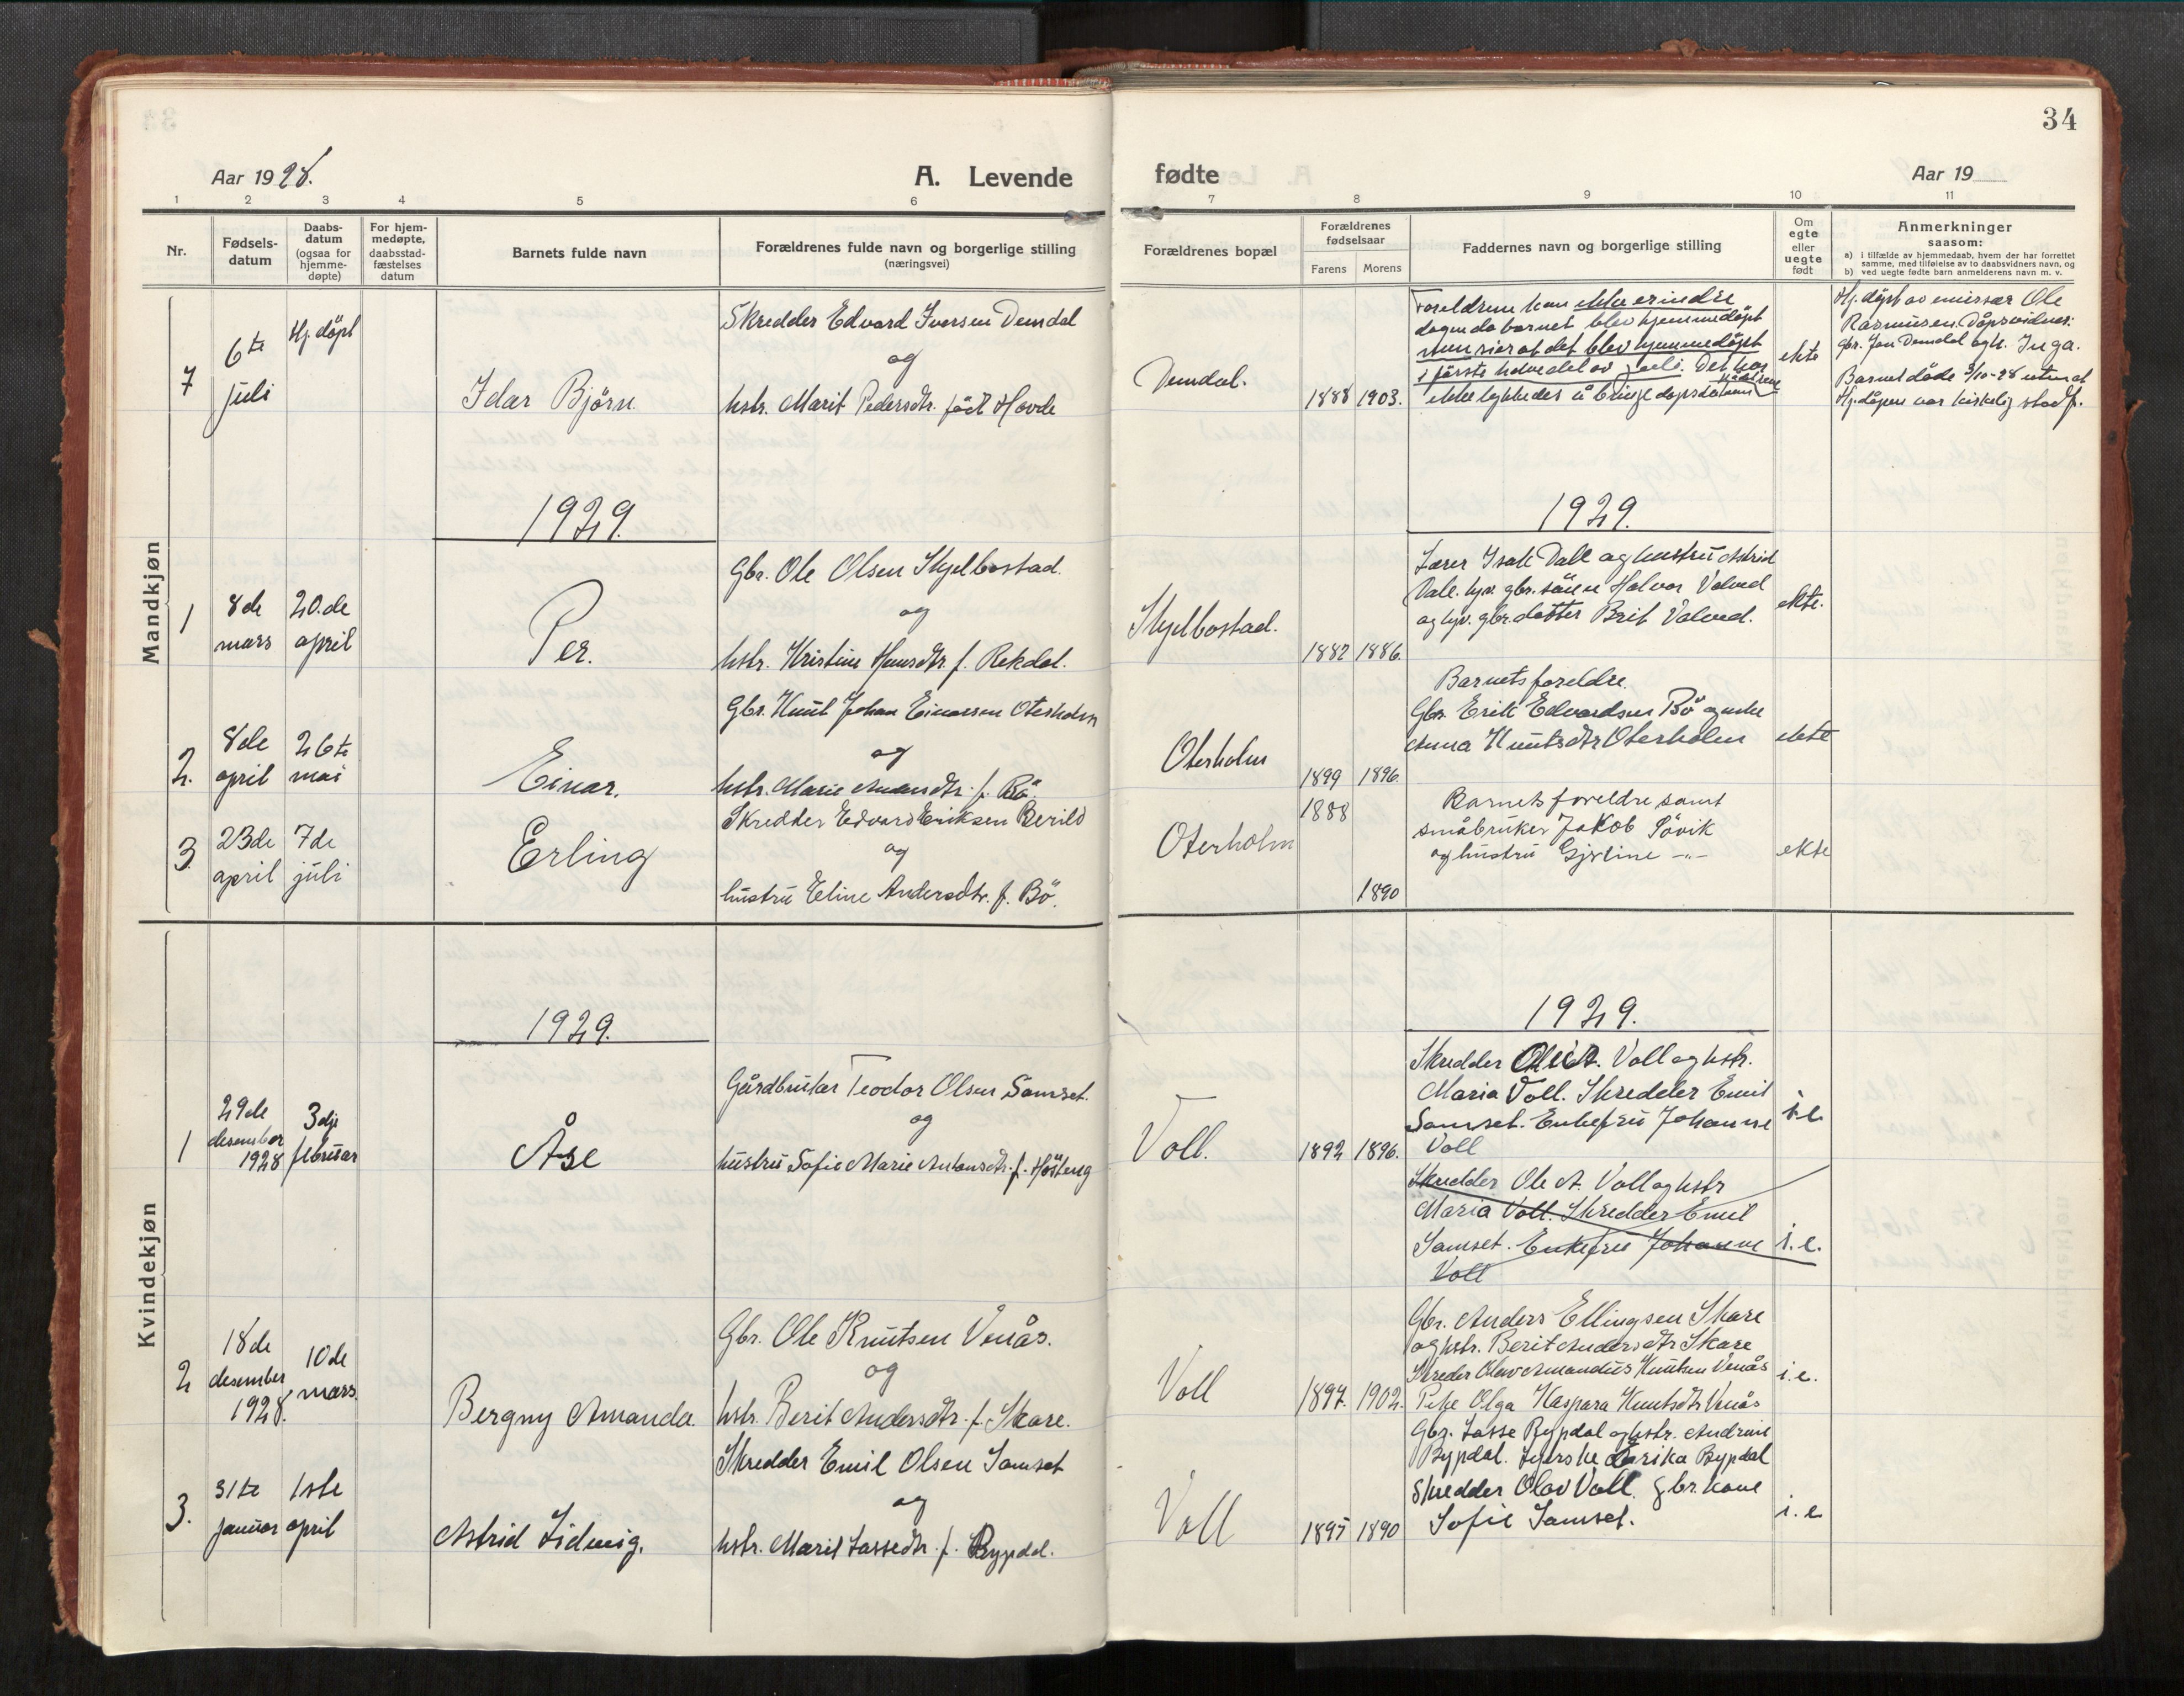 34
Aar 1928.
A. Levende
fødte
Aar 19
1 2 3 4 5 6 7 8 9 10 11
Nr.
Fødsels-
datum
Daabs-
datum
(ogsaa for
hjemme-
døpte)
For hjem-
medøpte,
daabsstad-
fæstelses
datum
Barnets fulde navn
Forældrenes fulde navn og borgerlige stilling
(næringsvei)
Forældrenes bopæl
Forældrenes
fødselsaar
Farens Morens
Faddernes navn og borgerlige stilling
Om
egte
eller
uegte
født
Anmerkninger
saasom:
a) i tilfælde av hjemmedaab, hvem der har forrettet
samme, med tilføielse av to daabsvidners navn, og
b) ved uegte fødte barn anmelderens navn m. v.
Mandkjøn
7
6te
juli
Hj. döpt
Idar Björn
Skredder Edvard Iversen Demdal
og
hstr. Marit Pedersdtr. födt Hovde
Demdal.
1888 1903.
Foreldrene kan ikke erindre
dagen da barnet blev hjemmedöpt
men sier at det blev hjemmedöpt
i förste halvdel av juli. Det har
ikke lykkedes å bringe dåpsdatum
ekte
Hj. döpt av emissær Ole
Rasmussen. Dåpsvidner:
gbr. Jon Demdal og h. Inga.
Barnet döde 3/10-28 uten at
Hj. dåpen var kirkelig stadf.
1929.
1929.
1
8de
mars
20.de
april
Per.
Gbr. Ole Olsen Skjelbostad.
og
hstr. Kristine Hansdtr. f. Rekdal.
Skjelbostad.
1882 1886.
Lærer Isak Dale og hustru Astrid
Dale. Ugv. gbr. sönn Halvor Valved
og ugv. gbr. datter Brit Valved.
ekte.
2.
8de
april
26te
mai
Einar.
Gbr. Knut Johan Einarsen Oterholm
og
hstr. Marie Andersdtr. f. Bö.
Oterholm
1899 1896.
Barnets foreldre.
Gbr. Erik Edvardsen Bö og enke
Anna Knutsdtr Oterholm
ekte
3.
23de
april
7de
juli
Erling
Skredder Edvard Eriksen Berild
og
hustru Eline Andersdtr. f. Bö.
Oterholm
1888
1890
Barnets foreldre samt
småbruker Jakob Sövik
og hustru Gjertine -"-
ekte
Kvindekjøn
1929.
1929.
1
29de
desember
1928
3dje
februar
Åse
Gårdbruker Teodor Olsen Samset.
og
hustru Sofie Marie Antonsdtr. f. Hösteng
Voll.
1892 1896.
Skredder Ole A. Voll og hstr.
Maria Voll. Skredder Emil
Samset. Enkefru Johanne
Voll
i.e.
Skredder Ole A. Voll og hstr
Maria Voll. Skredder Emil
Samset. Enkefru Johanne
Voll
i.e.
2
18de
desember
1928.
10de
mars.
Bergny Amanda.
Gbr. Ole Knutsen Venås.
og
hstr. Berit Andersdtr. f. Skare.
Voll
1897. 1902.
Gbr. Anders Ellingsen Skare
og hstr. Berit Andersdtr Skare
Skreder Olav Amandus Knutsen Venås
Pike Olga Kaspara Knutsdtr Venås
i.e.
3.
31te
januar
1ste
april
Astrid Lidveig.
Skredder Emil Olsen Samset
og
hstr. Marit Lassedtr. f. Rypdal.
Voll
1895 1890
Gbr. Lasse Rypdal og hstr. Andrine
Rypdal. Syerske Larika Rypdal
Skredder Olav Voll. Gbr. kone
Sofie Samset.
i.e.